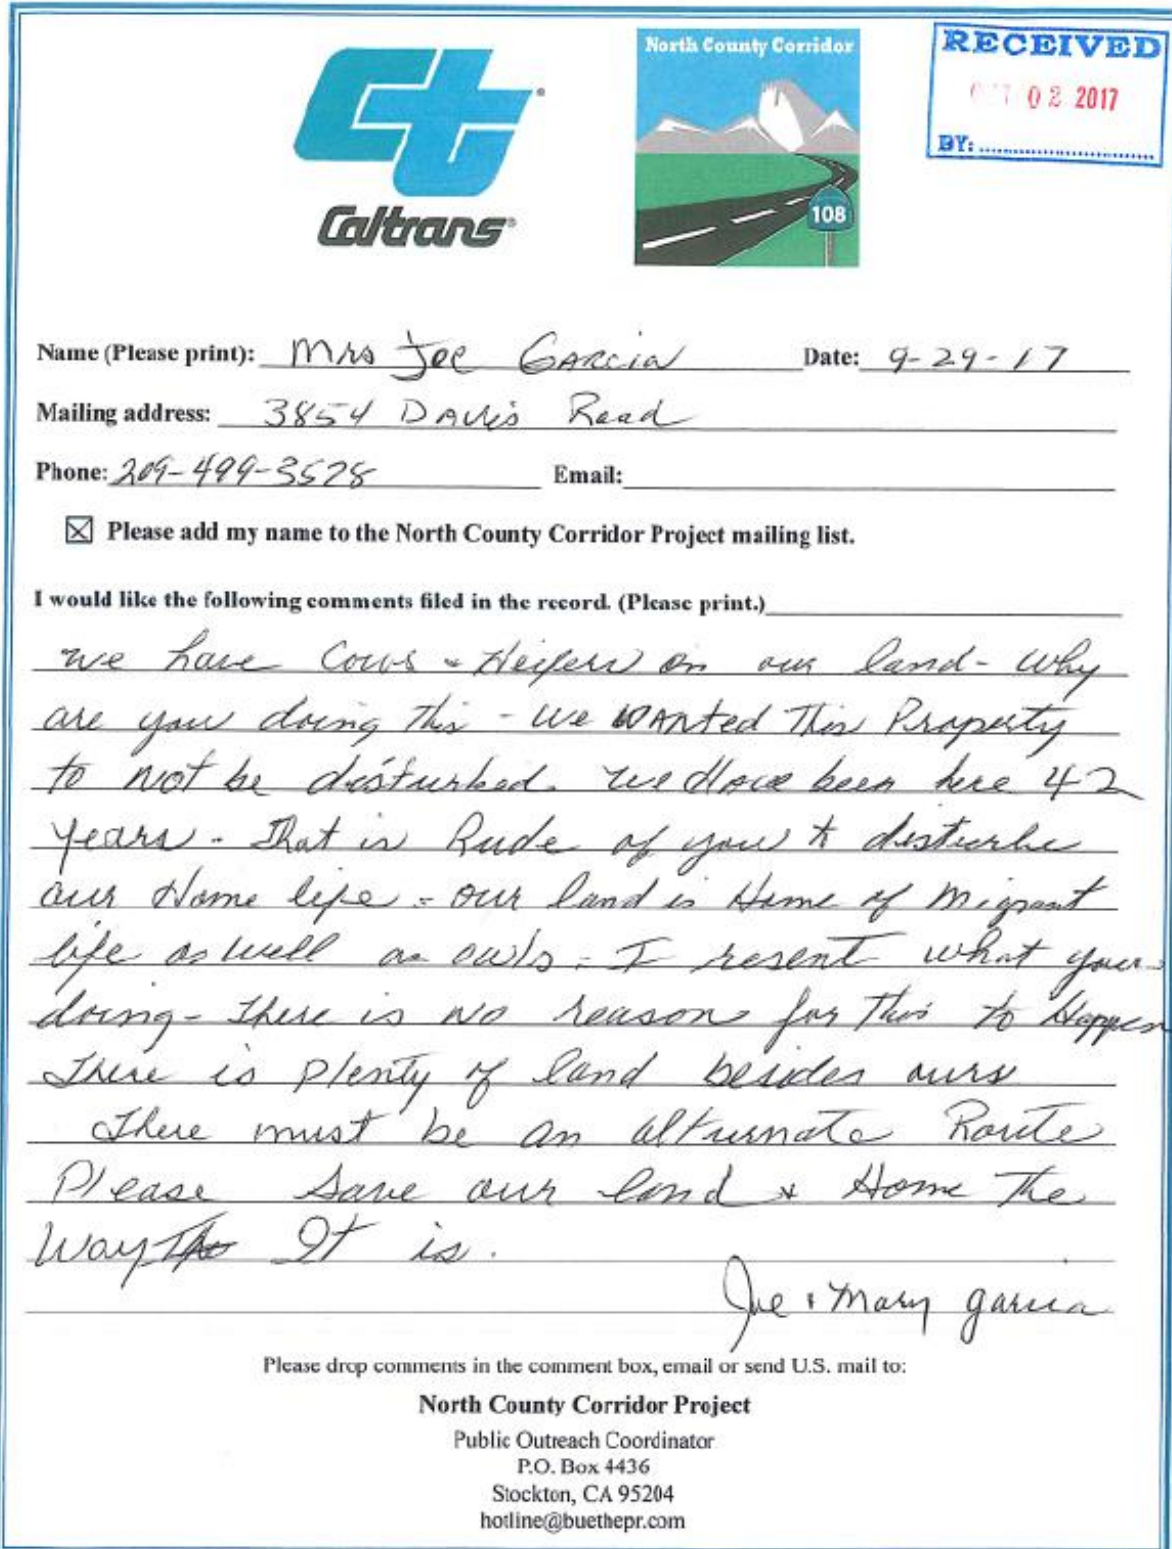 North County Corridor
RECEIVED
02 2017
BY:
Ct
Caltrans
108
Name (Please print): Mrs Joe GARCIA Date: 9-29-17
Mailing address: 3854 DAVIS Road
Phone: 209-499-3578 Email:
☒ Please add my name to the North County Corridor Project mailing list.
I would like the following comments filed in the record. (Please print.)
we have Cows & Heifers on our land - why
are you doing this - we WANTED This Property
to not be disturbed. we Have been here 42
years - That is Rude of you to disturbe
our Home life - our land is Home of Migrant
life as well as owls - I resent what your
doing - there is no reason for This to Happen
There is plenty of land besides ours
There must be an alturnate Route
Please save our land & Home The
Way It is.
Joe & Mary Garcia
Please drop comments in the comment box, email or send U.S. mail to:
North County Corridor Project
Public Outreach Coordinator
P.O. Box 4436
Stockton, CA 95204
hotline@buethepr.com